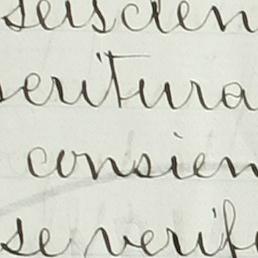 seiscien
seritura
consien
se verifi